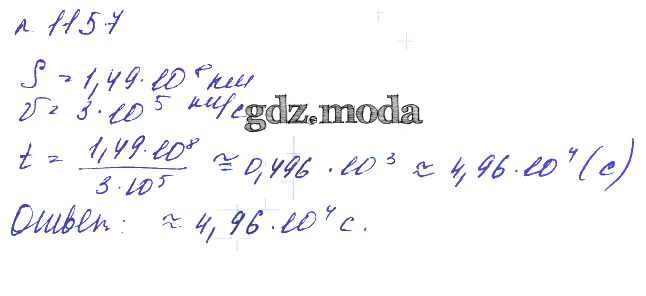 n. 1157
S = 1,49·10⁸ км
v = 3·10⁵ км/с
gdz.moda
t = 1,49·10⁸ / 3·10⁵ ≈ 0,496·10³ ≈ 4,96·10⁴ (с)
Ответ: ≈ 4,96·10⁴ с.